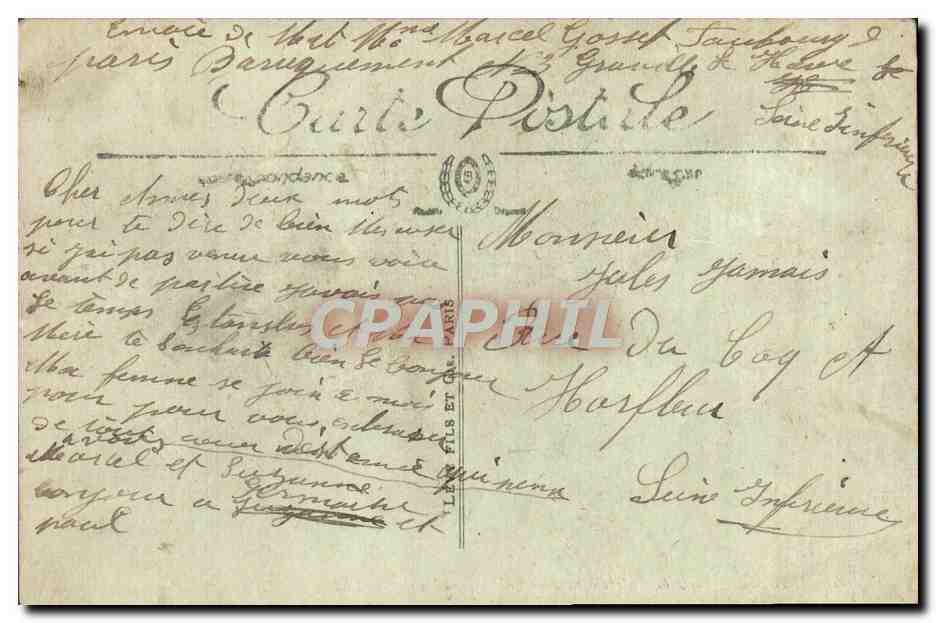 Envoie de Mr et Mme Marcel Gosset Faubourg d
paris Baraquement N 3 Graville le Havre
Seine Inférieure
Carte Postale
Correspondance
Adresse
Cher Amis deux mots
pour te dire de bien Mescuser
si j'ai pas venue vous voire
avant de partire javais pas
le temps
Mère te souhaite bien le bonjour
Ma femme se join a moi
pour pour vous embrasser
de tout coeur
Marcel et Suzanne
bonjour a Germaine et
paul
Monsieur
Jules Jamais
Rue Du Coq A
Harfleur
Seine Inferieure
FILS ET Cie PARIS
CPAPHIL